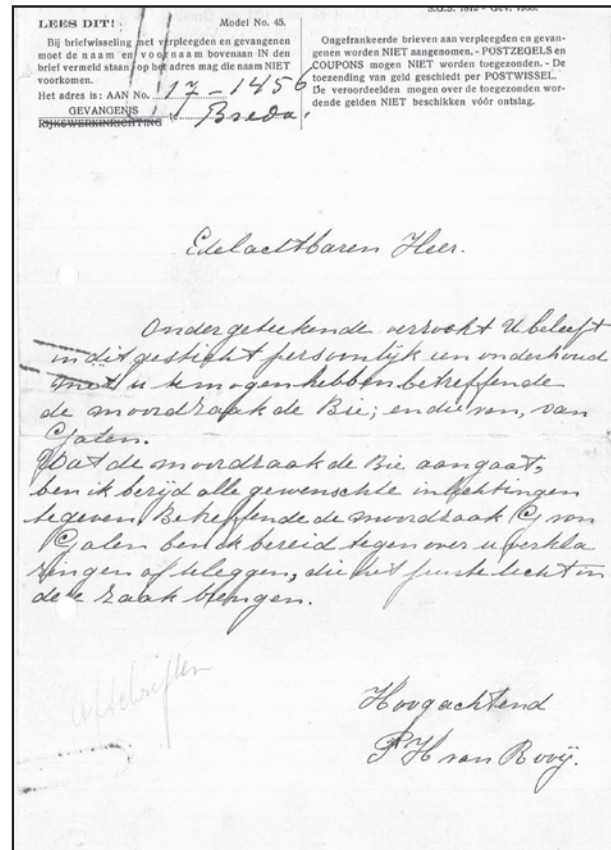 S.G.S. 1812 - Gev. 1938.
LEES DIT! Model No. 45.
Bij briefwisseling met verpleegden en gevangenen
moet de naam en voornaam bovenaan IN den
brief vermeld staan, op het adres mag die naam NIET
voorkomen.
Het adres is: AAN No. 17-1456
GEVANGENIS
RIJKSWERKINRICHTING te Breda,
Ongefrankeerde brieven aan verpleegden en gevan-
genen worden NIET aangenomen. - POSTZEGELS en
COUPONS mogen NIET worden toegezonden. - De
toezending van geld geschiedt per POSTWISSEL.
De veroordeelden mogen over de toegezonden wor-
dende gelden NIET beschikken vóór ontslag.
Edelachtbaren Heer.
Ondergeteekende verzocht U beleeft
in dit gesticht persoonlijk een onderhoud
met u te mogen hebben betreffende
de moordzaak de Bie; en die von, van
Galen.
Wat de moordzaak de Bie aangaat,
ben ik berijd alle gewenschte inlichtingen
te geven Betreffende de moordzaak G von
Galen ben ik bereid tegen over u verkla
ringen af te leggen, die het juiste licht in
deze zaak brengen.
afschriften
Hoogachtend
P H van Rooij.